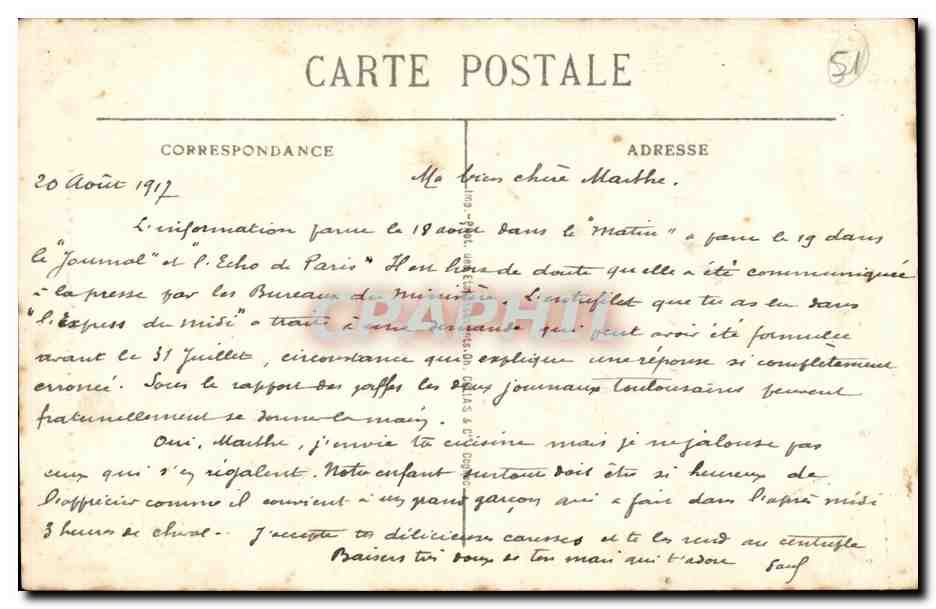 CARTE POSTALE
51
CORRESPONDANCE
ADRESSE
20 Août 1917
Ma bien chère Marthe.
L'information parue le 18 août dans le "Matin" a paru le 19 dans
le "Journal" et "l'Echo de Paris" Il est hors de doute qu'elle a été communiquée
à la presse par les Bureaux du Ministère. L'entrefilet que tu as lu dans
"l'Express du Midi" a trait à une demande qui peut avoir été formulée
avant le 31 Juillet, circonstance qui explique une réponse si complètement
erronée. Sous le rapport des gaffes les deux journaux toulousains peuvent
fraternellement se donner la main.
Oui, Marthe, j'envie ta cuisine mais je ne jalouse pas
ceux qui s'en régalent. Notre enfant surtout doit être si heureux de
l'apprécier comme il convient à un grand garçon qui a fait dans l'après midi
3 heures de cheval.. J'accepte tes délicieuses caresses et te les rend au centuple
Baisers très doux de ton mari qui t'adore
Paul
CPAPHIL